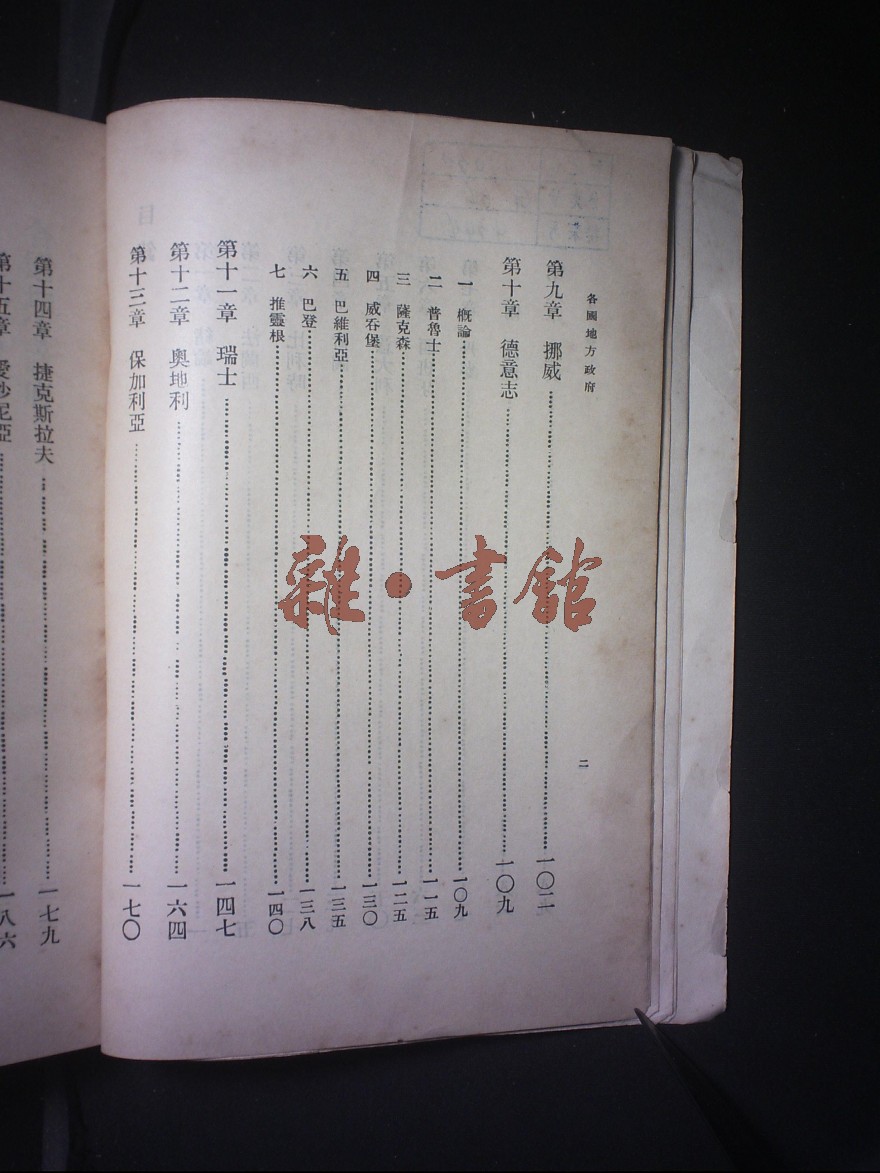 各國地方政府
二
第九章 挪威 一〇二
第十章 德意志 一〇九
一 概論 一〇九
二 普魯士 一一五
三 薩克森 一二五
四 威吞堡 一三〇
五 巴維利亞 一三五
六 巴登 一三八
七 推靈根 一四〇
第十一章 瑞士 一四七
第十二章 奧地利 一六四
第十三章 保加利亞 一七〇
第十四章 捷克斯拉夫 一七九
第十五章 愛沙尼亞 一八六
雜·書館